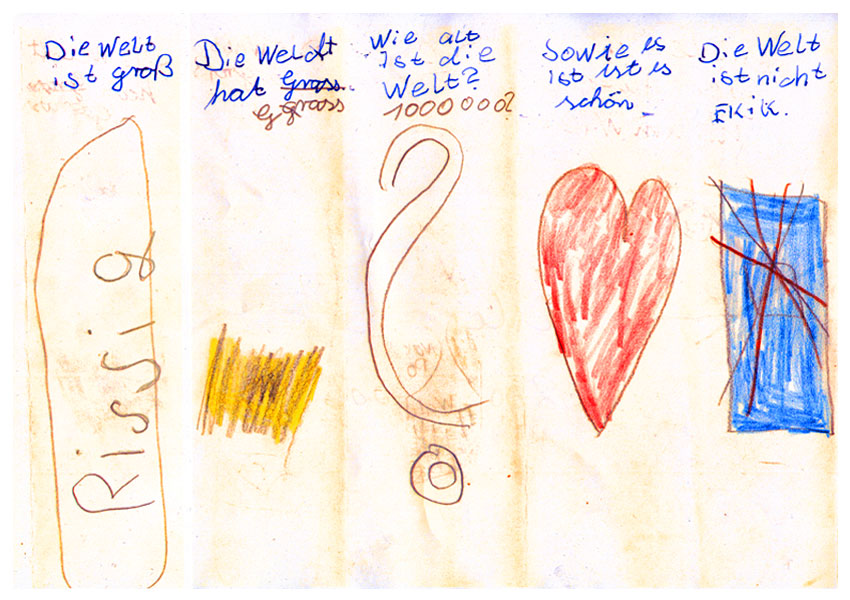 Die Welt
ist groß
Rissig
Die Weldt
hat Grass.
Ggrass
Wie alt
Ist die
Welt?
1000000?
Sowie es
ist ist es
schön.
Die Welt
ist nicht
EKiK.